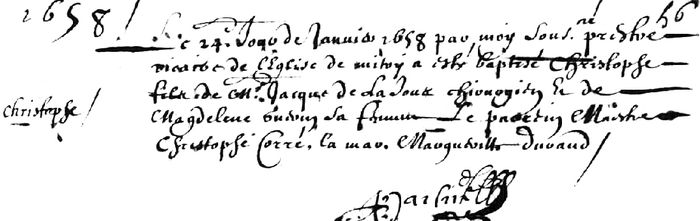 1658
56
Le 24e Jour de Janvier 1658 par moy sous.né prestre
vicaire de l'Eglise de mitry a esté baptisé Christophe
fils de Mre Jacque de Lafour chirurgien & de
Christophe
Magdelene Guerin sa femme Le parrin Maistre
Christophe Corré, la mar. Margueritte Durand